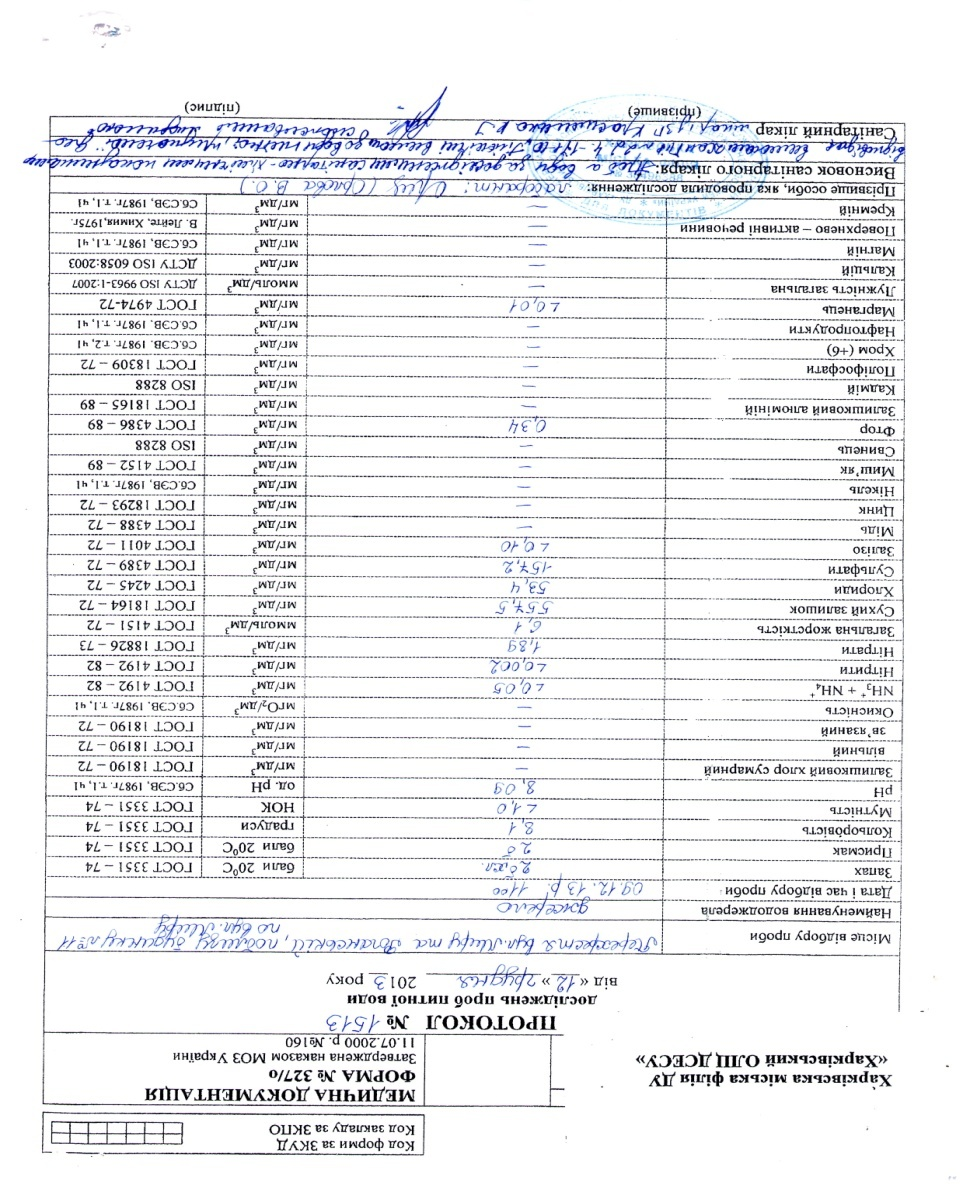 Код форми за ЗКУД
Код закладу за ЗКПО
Харківська міська філія ДУ
«Харківський ОЛЦ ДСЕСУ»
МЕДИЧНА ДОКУМЕНТАЦІЯ
ФОРМА № 327/о
Затверджена наказом МОЗ України
11.07.2000 р. №160
ПРОТОКОЛ № 1513
досліджень проб питної води
від «12» грудня 2013 року
Місце відбору проби Перехрестя вул. Миру та , поблизу будинку №11
по вул. Миру
Найменування вододжерела джерело
Дата і час відбору проби 09.12.13 р. 11 00
Запах 2 б бали 20⁰С ГОСТ 3351 – 74
Присмак 2 б бали 20⁰С ГОСТ 3351 – 74
Кольоровість 8,1 градуси ГОСТ 3351 – 74
Мутність <1,0 НОК ГОСТ 3351 – 74
рН 8,09 од. рН Сб.СЭВ, 1987г. т.1, ч1
Залишковий хлор сумарний — мг/дм³ ГОСТ 18190 – 72
вільний — мг/дм³ ГОСТ 18190 – 72
зв'язаний — мг/дм³ ГОСТ 18190 – 72
Окисність — мгО₂/дм³ Сб.СЭВ. 1987г. т.1, ч1
NH₃⁺ + NH₄⁺ <0,05 мг/дм³ ГОСТ 4192 – 82
Нітрити <0,002 мг/дм³ ГОСТ 4192 – 82
Нітрати 1,89 мг/дм³ ГОСТ 18826 – 73
Загальна жорсткість 6,1 ммоль/дм³ ГОСТ 4151 – 72
Сухий залишок 557,5 мг/дм³ ГОСТ 18164 – 72
Хлориди 53,4 мг/дм³ ГОСТ 4245 – 72
Сульфати 157,2 мг/дм³ ГОСТ 4389 – 72
Залізо <0,10 мг/дм³ ГОСТ 4011 – 72
Мідь — мг/дм³ ГОСТ 4388 – 72
Цинк — мг/дм³ ГОСТ 18293 – 72
Нікель — мг/дм³ Сб.СЭВ, 1987г. т.1, ч1
Миш'як — мг/дм³ ГОСТ 4152 – 89
Свинець — мг/дм³ ISO 8288
Фтор 0,34 мг/дм³ ГОСТ 4386 – 89
Залишковий алюміній — мг/дм³ ГОСТ 18165 – 89
Кадмій — мг/дм³ ISO 8288
Поліфосфати — мг/дм³ ГОСТ 18309 – 72
Хром (+6) — мг/дм³ Сб.СЭВ. 1987г. т.2, ч1
Нафтопродукти — мг/дм³ Сб.СЭВ. 1987г. т.1, ч1
Марганець <0,01 мг/дм³ ГОСТ 4974-72
Лужність загальна — ммоль/дм³ ДСТУ ISO 9963-1:2007
Кальцій — мг/дм³ ДСТУ ISO 6058:2003
Магній — мг/дм³ Сб.СЭВ, 1987г. т.1, ч1
Поверхнево – активні речовини — мг/дм³ В. Лейте. Химия,1975г.
Кремній — мг/дм³ Сб.СЭВ, 1987г. т.1, ч1
Прізвище особи, яка проводила дослідження: лаборант:
Висновок санітарного лікаря: Проба води за дослідженими санітарно-хімічними показниками
відповідає вимогам
Санітарний лікар
(прізвище) (підпис)